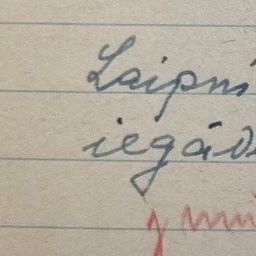 Laipni
iegād